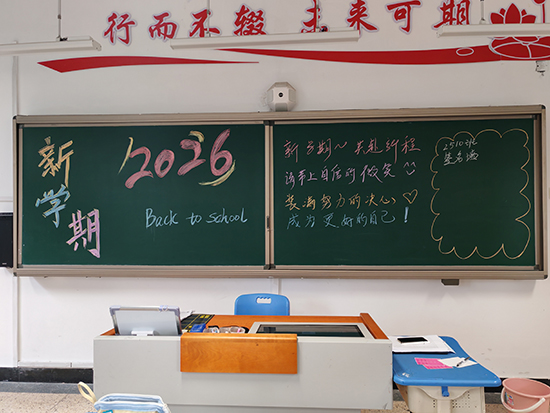 行而不辍 未来可期
新学期
2026
Back to school
新学期~ 共赴新程
请带上自信的微笑
装满努力的决心
成为更好的自己!
2510班
签名